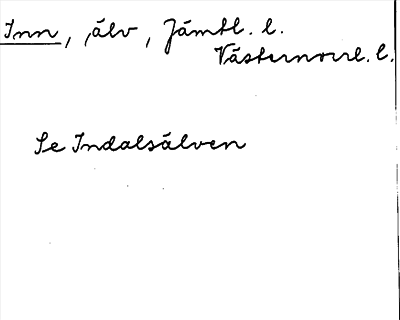 Inn, älv, Jämtl. l.
Västernorrl. l.
Se Indalsälven